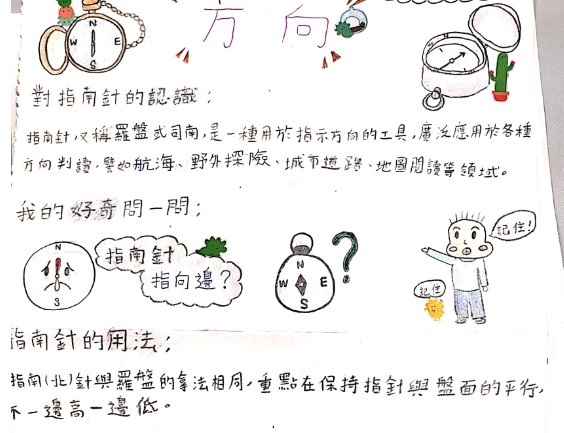 方向
N
W E
S
對指南針的認識：
指南針，又稱羅盤或司南，是一種用於指示方向的工具，廣泛應用於各種
方向判讀，譬如航海、野外探險、城市道路、地圖閱讀等領域。
我的好奇問一問：
N
S
指南針
指向邊？
N
W E
S
？
記住！
記住
指南針的用法：
指南(北)針與羅盤的拿法相同，重點在保持指針與盤面的平行，
不一邊高一邊低。